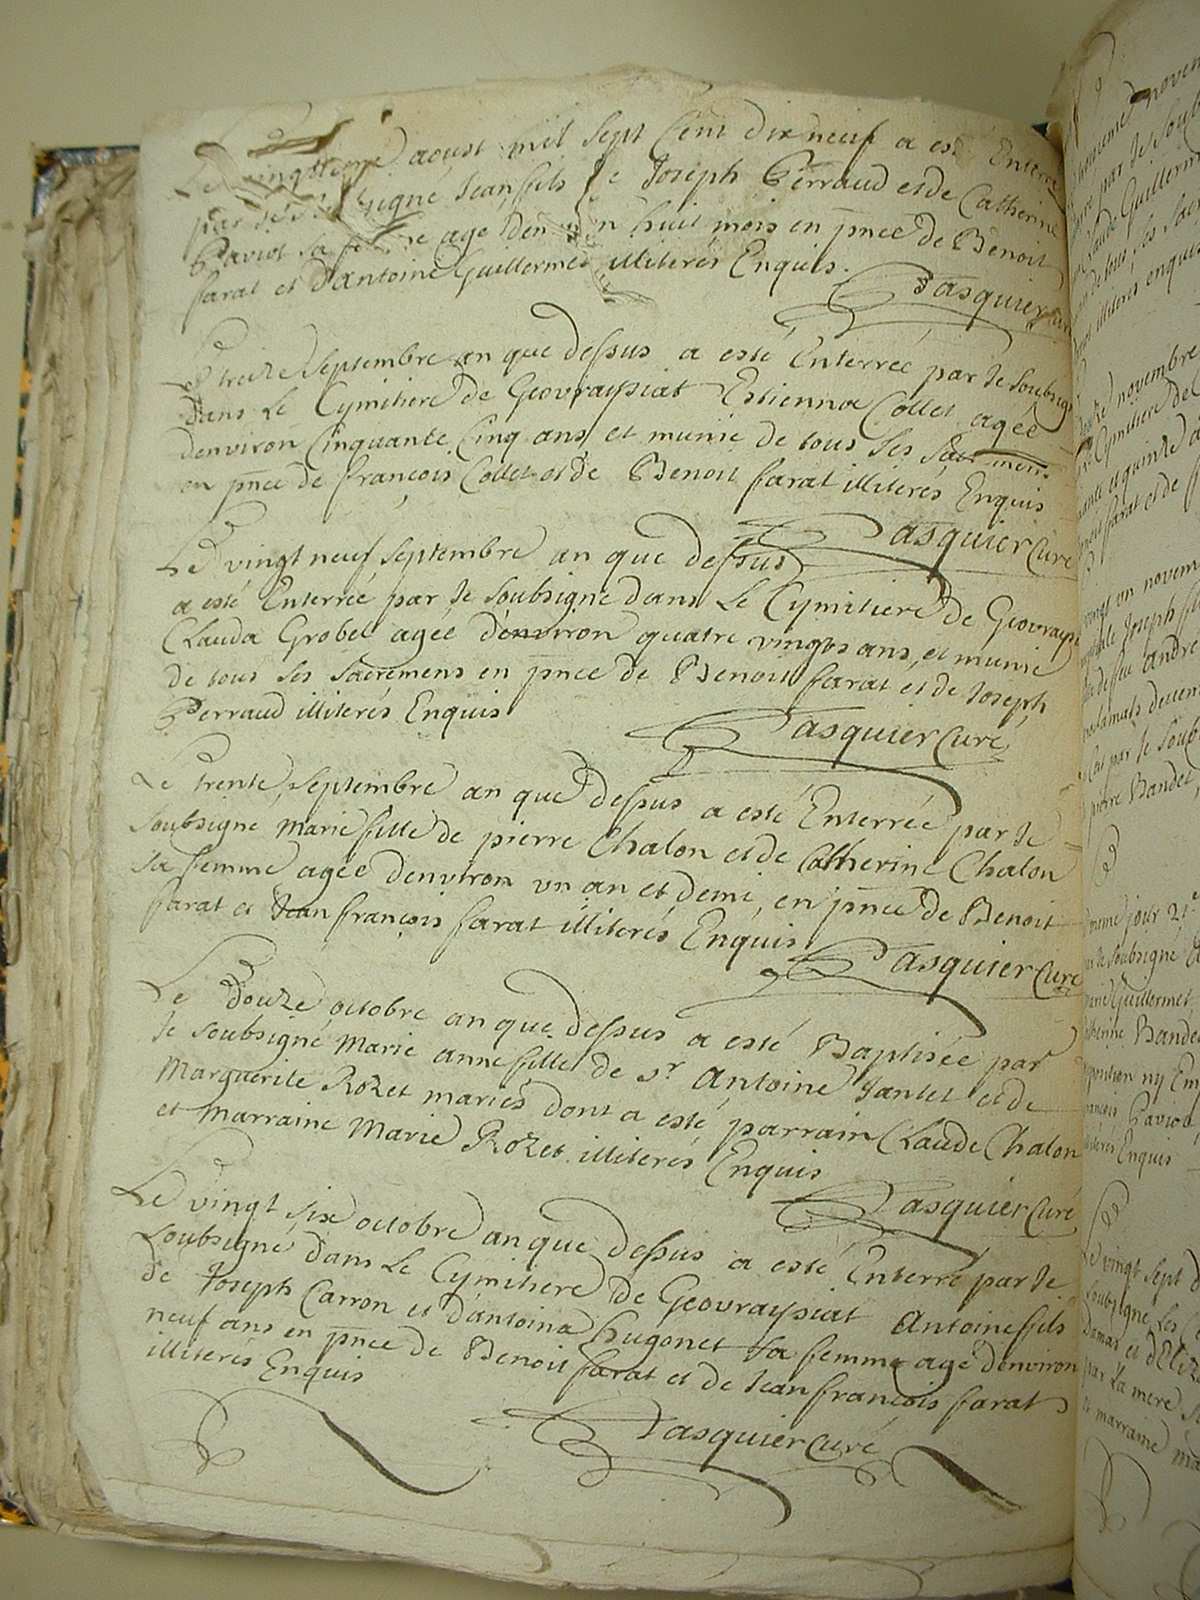 Le vingtieme aoust mil sept Cent dix neuf a esté Enterré
par Je soubsigné Jean fils de Joseph Perraud et de Catherine
Paviot sa femme agé denviron huit mois en pnce de Benoit
farat et d'antoine Guillermet illiterés Enquis.
Pasquier Curé
Le treize Septembre an que dessus a esté Enterrée par Je soubsigné
dans Le Cymitiere de Geovraysiat Estienna Collet agée
denviron Cinquante Cinq ans et munie de tous ses sacremens
en pnce de françois Collet et de Benoit farat illiterés Enquis
Pasquier Curé
Le vingt neuf septembre an que dessus
a esté Enterrée par Je soubsigné dans Le Cymitiere de Geovraysiat
Clauda Grobet agée denviron quatre vingts ans, et munie
de tous ses sacremens en pnce de Benoit farat et de Joseph
Perraud illiterés Enquis
Pasquier Curé
Le trente septembre an que dessus a esté Enterrée par Je
soubsigné Marie fille de pierre Chalon et de Catherine Chalon
sa femme agée denviron un an et demi, en pnce de Benoit
farat et Jean françois farat illiterés Enquis
Pasquier Curé
Le Douze octobre an que dessus a esté Baptisée par
Je soubsigné Marie anne fille de sr Antoine Jantet et de
Marguerite Rozet mariés dont a esté parrain Claude Chalon
et Marraine Marie Rozet illiterés Enquis
Pasquier Curé
Le vingt six octobre an que dessus a esté Enterré par Je
soubsigné dans Le Cymitiere de Geovraysiat Antoine fils
de Joseph Carron et d'antoina hugonet sa femme agé denviron
neuf ans en pnce de Benoit farat et de Jean françois farat
illiterés Enquis
Pasquier Curé
novembre
par Je soub
Claude Guillerm
de tous ses sac
illiterés enquis
novembre
Cymitiere de
et quinze
farat et de
vingt un novem
Joseph
andre
par Je soub
pierre Bandet
jour 21e
soubsigné
Guillermet
Bande
ny Em
Paviot
Enquis
Le vingt sept
soubsigné Les
Damas et d'Eliz
par La mere
et marraine ma